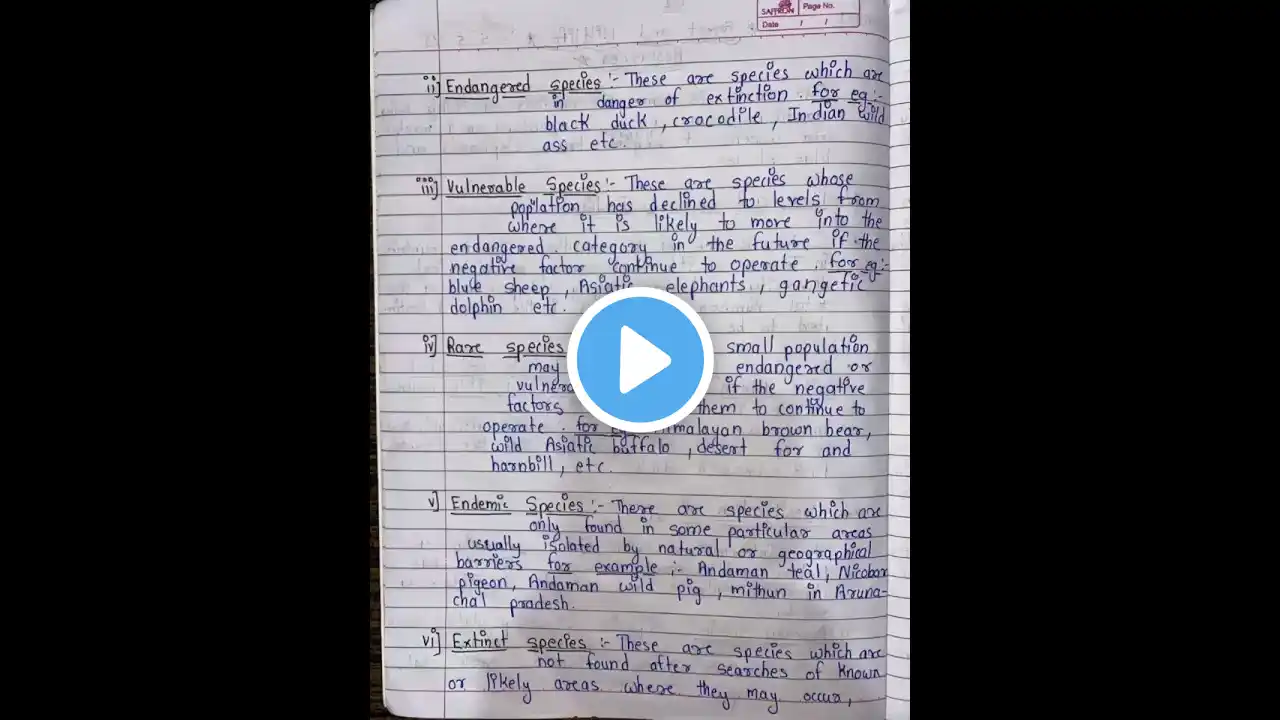 SAFFRON
Page No.
Date / /
ii] Endangered species :- These are species which are
in danger of extinction. for eg:-
black duck, crocodile, Indian wild
ass etc.
iii] Vulnerable Species :- These are species whose
population has declined to levels from
where it is likely to more into the
endangered category in the future if the
negative factor continue to operate, for eg:-
blue sheep, Asiatic elephants, gangetic
dolphin etc.
iv] Rare species small population
may endangered or
if the negative
factors them to continue to
operate. for brown bear,
wild Asiatic buffalo, desert for and
hornbill, etc.
v] Endemic Species :- There are species which are
only found in some particular areas
usually isolated by natural or geographical
barriers for example :- Andaman teal, Nicobar
pigeon, Andaman wild pig, mithun in Aruna-
chal pradesh.
vi] Extinct species :- These are species which are
not found after searches of known
or likely areas where they may occur,